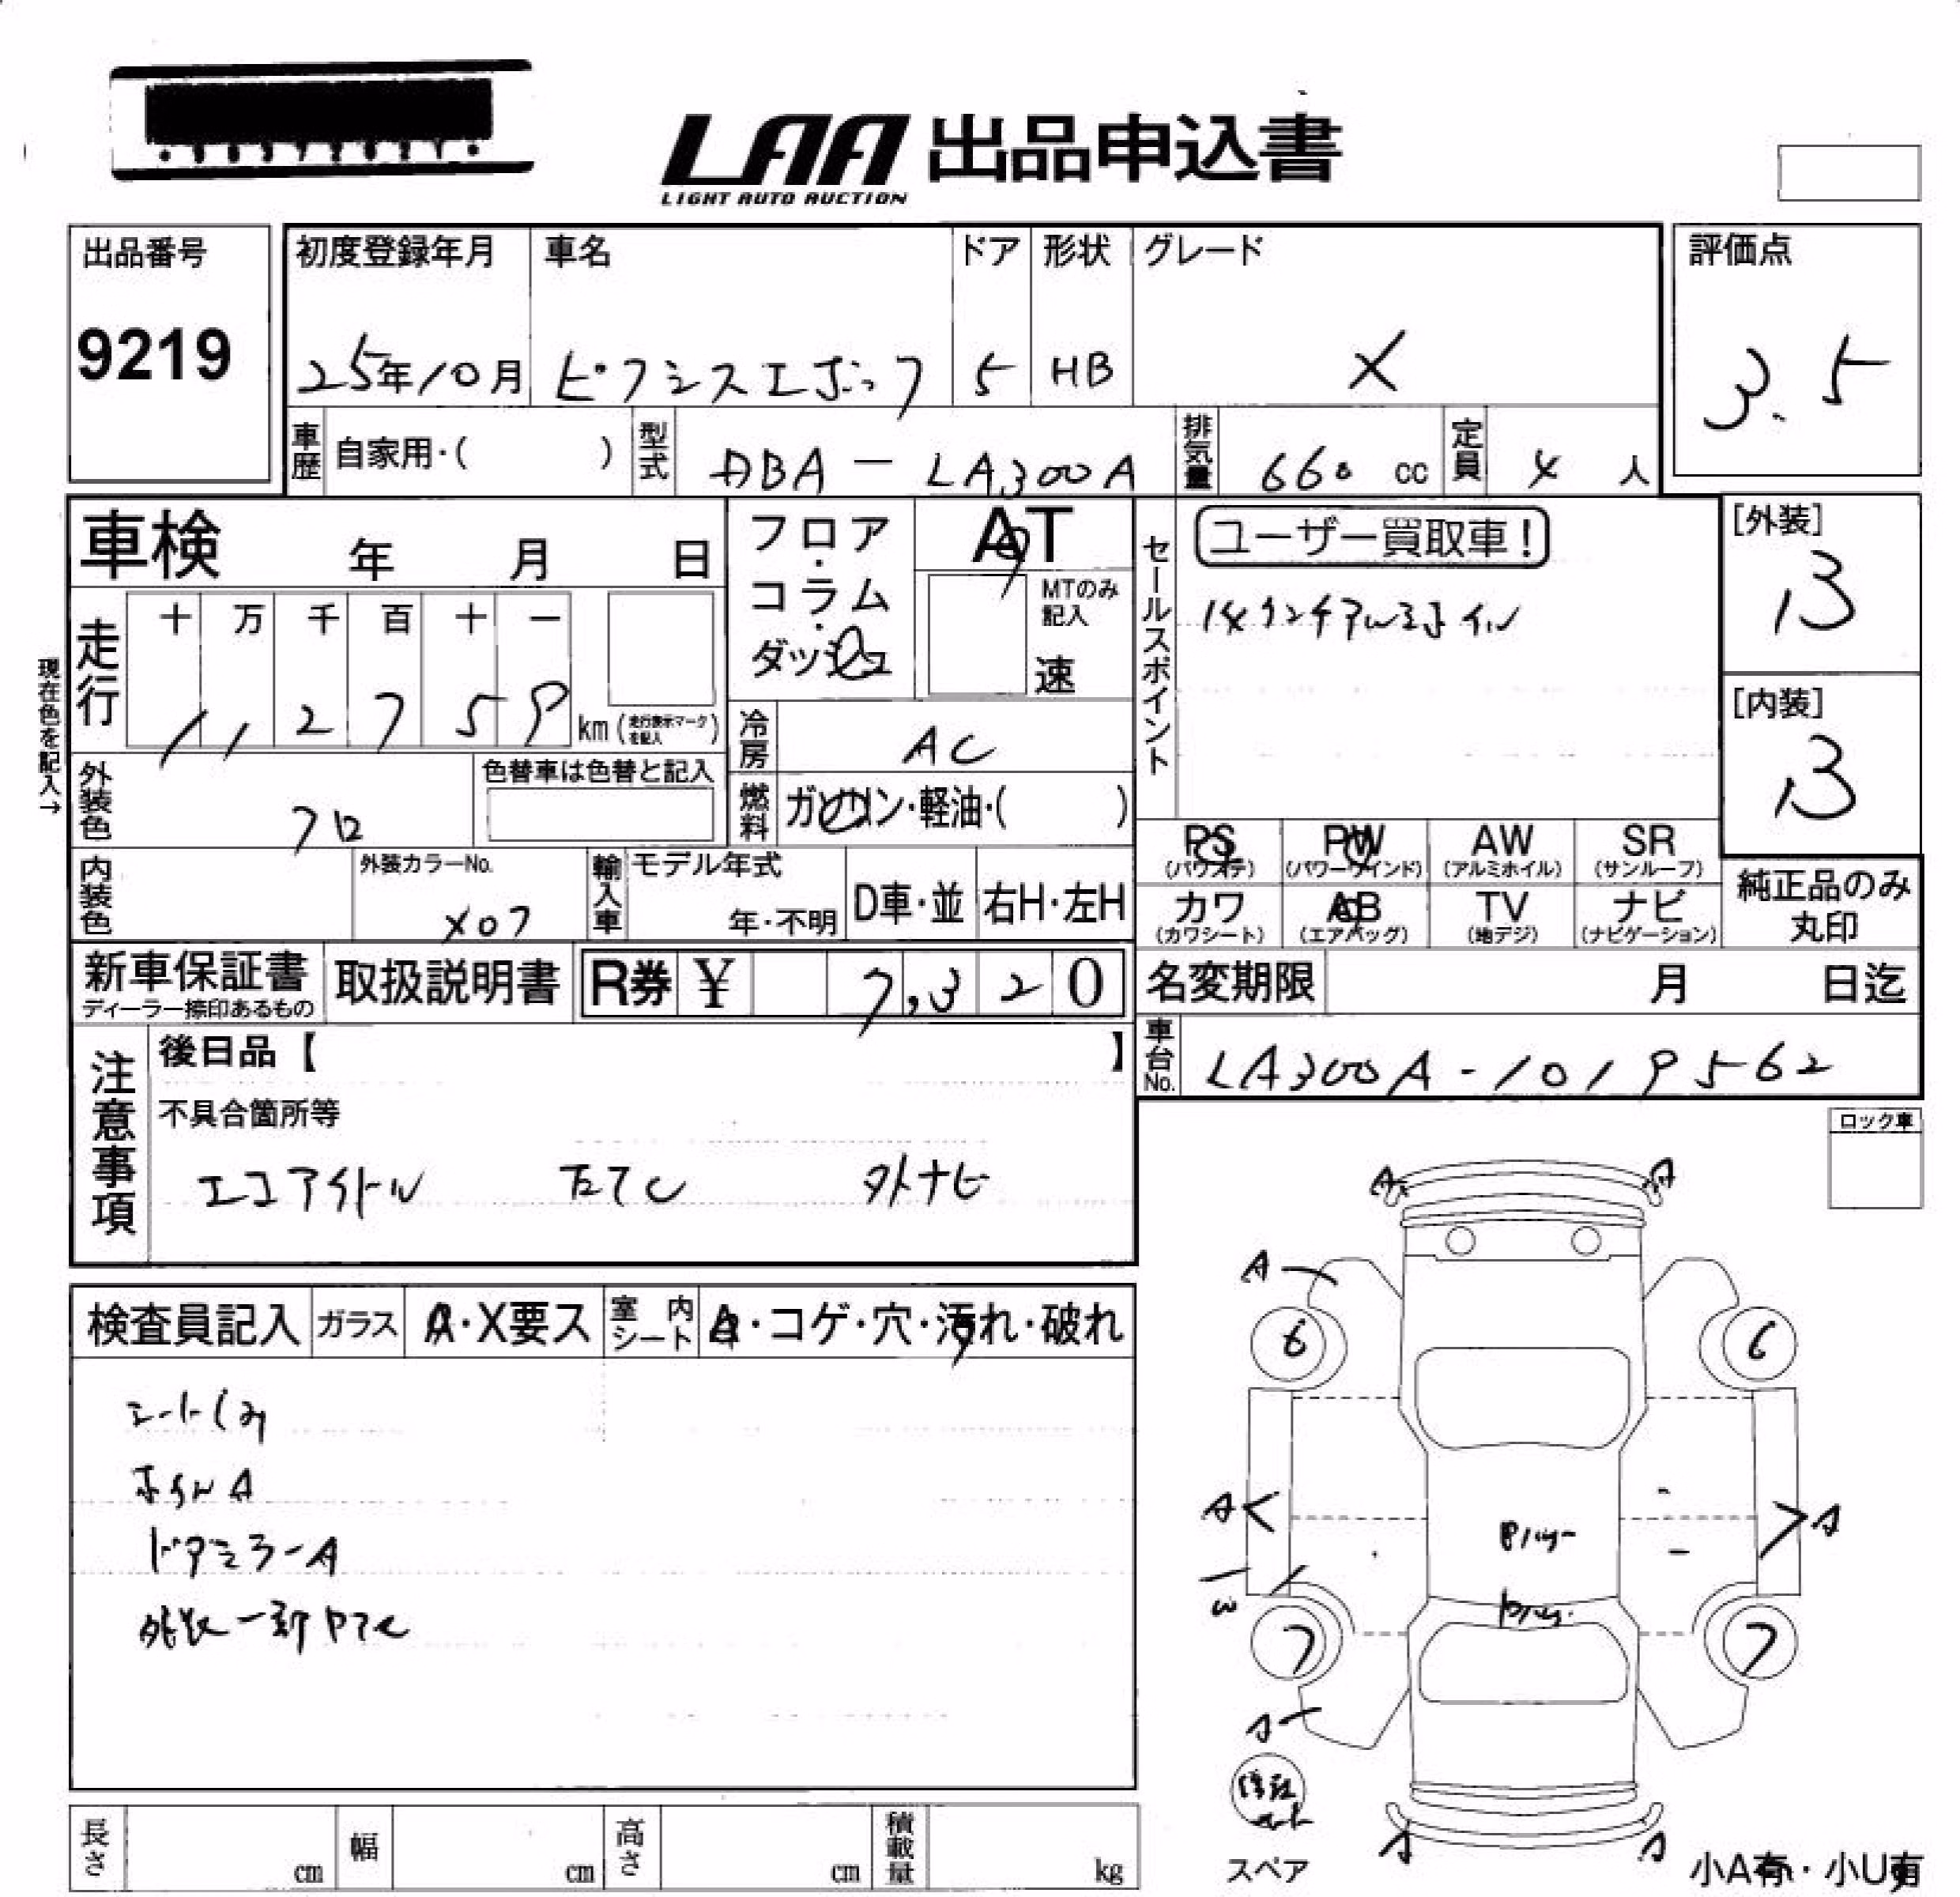 LAA 出品申込書
LIGHT AUTO AUCTION
出品番号
9219
初度登録年月
25年10月
車名
ピクシスエポック
ドア
5
形状
HB
グレード
X
評価点
3.5
車歴 自家用・( )
型式 DBA-LA300A
排気量 660 cc
定員 4 人
車検 年 月 日
フロア・コラム・ダッシュ
AT
MTのみ記入
速
走行
十 万 千 百 十 一
112759 km (走行表示マークを記入)
現在色を記入→
外装色 クロ
色替車は色替と記入
冷房 AC
燃料 ガソリン・軽油・( )
内装色
外装カラーNo.
X07
輸入車
モデル年式
年・不明
D車・並
右H・左H
セールスポイント
ユーザー買取車!
14インチアルミホイル
[外装]
B
[内装]
B
PS
(パワステ)
PW
(パワーウインド)
AW
(アルミホイル)
SR
(サンルーフ)
カワ
(カワシート)
AB
(エアバッグ)
TV
(地デジ)
ナビ
(ナビゲーション)
純正品のみ丸印
新車保証書
ディーラー捺印あるもの
取扱説明書
R券 ¥ 7,320
名変期限 月 日迄
車台No. LA300A-1019562
注意事項
後日品【 】
不具合箇所等
エコアイドル 左てC 外ナビ
ロック車
検査員記入
ガラス A・X要ス
室内シート A・コゲ・穴・汚れ・破れ
シートしみ
ホイルA
ドアミラーA
外装一部ヤケ
A A
A
6 6
A A
7 7
A
A A
スペア
小A有・小U有
長さ cm
幅 cm
高さ cm
積載量 kg